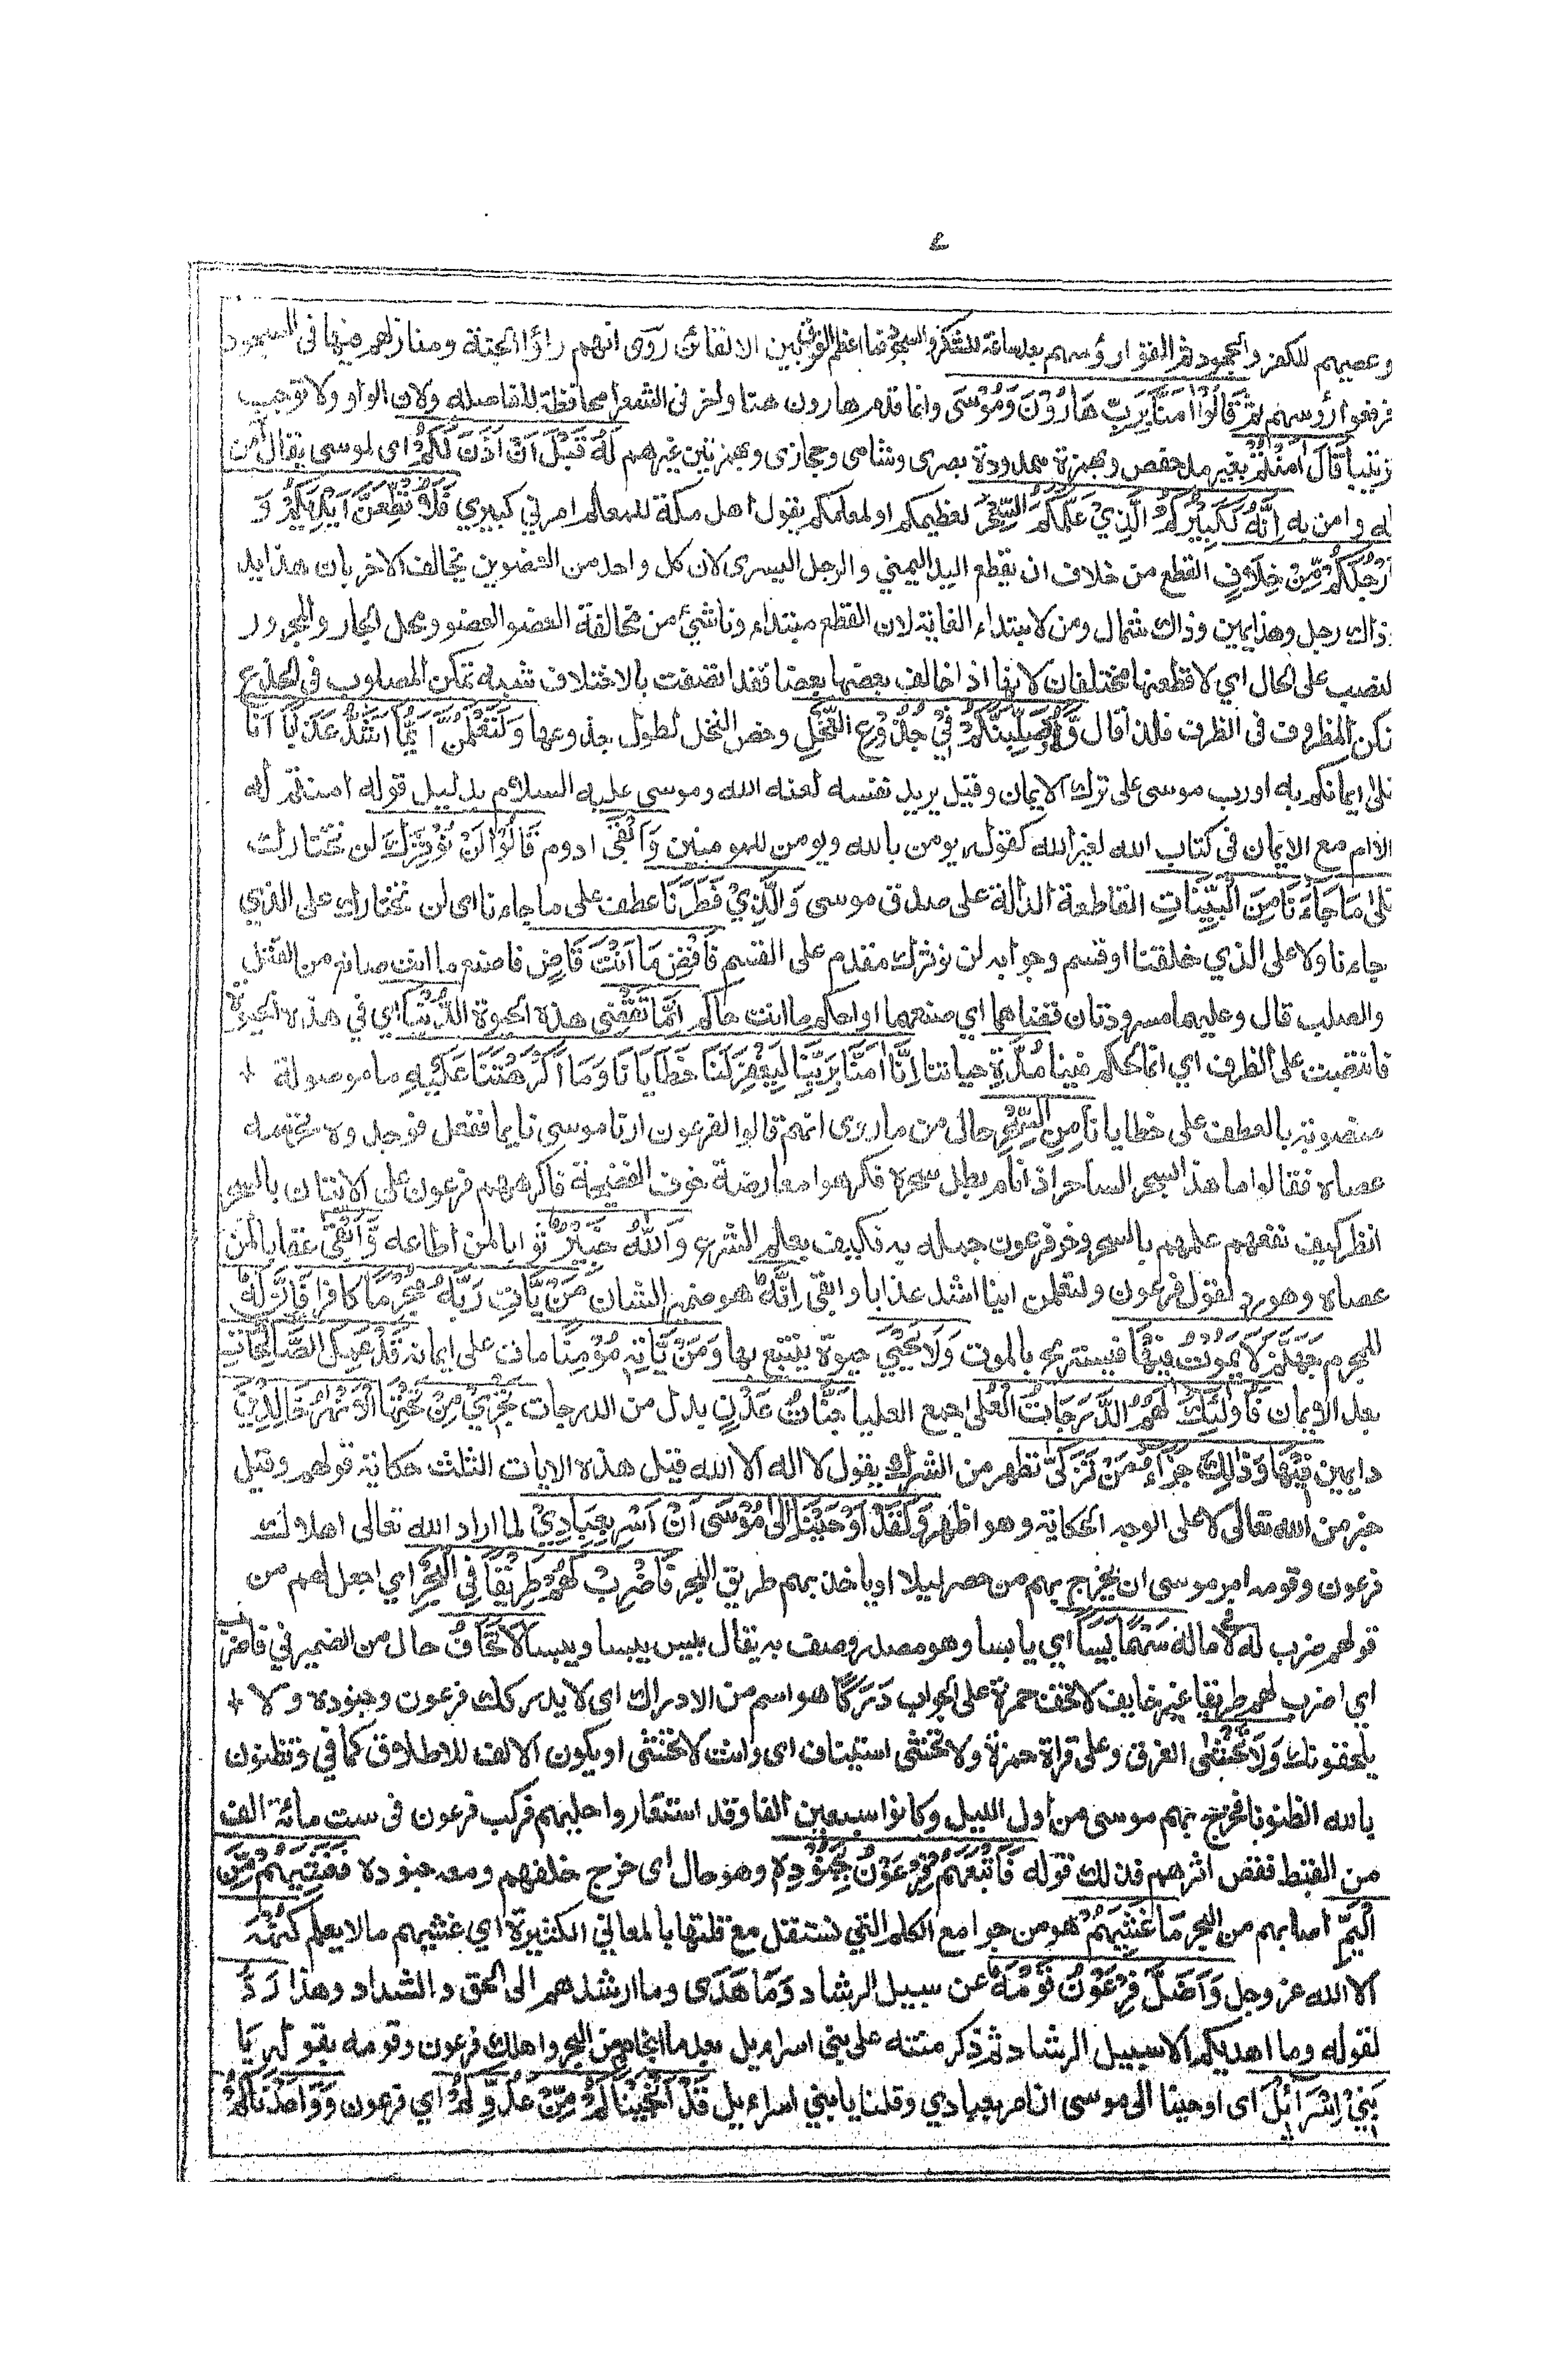 وعصيهم للكفر والجحود ثم القوا رؤسهم بعد ساعة للشكر والسجود فما اعظم الفرق بين الالقائين روى انهم راؤا الجنة ومنازلهم فيها فى السجود
فرفعوا رؤسهم ثم قَالُوْا اٰمَنَّا بِرَبِّ هَارُوْنَ وَمُوْسٰى وانما قدم هارون هنا واخر فى الشعرا محافظة للفاصله ولان الواو ولا توجب
ترتيبا قَالَ اٰمَنْتُمْ بغير مد حفص وبهمزة ممدودة بصرى وشامى وحجازى وبهمزتين غيرهم لَهُ قَبْلَ اَنْ اٰذَنَ لَكُمْ اى لموسى يقال آمن
له وامن به اِنَّهُ لَكَبِيْرُكُمُ الَّذِيْ عَلَّمَكُمُ السِّحْرَ لعظيمكم او لمعلمكم يقول اهل مكة للمعلم امرني كبيري فَلَاُقَطِّعَنَّ اَيْدِيَكُمْ وَ
اَرْجُلَكُمْ مِّنْ خِلَافٍ القطع من خلاف ان يقطع اليد اليمني والرجل اليسرى لان كل واحد من العضوين يخالف الاخر بان هذا يد
وذاك رجل وهذا يمين وذاك شمال ومن لابتداء الغاية لان القطع مبتداء وناشئ من مخالفة العضو العضو ومحل الجار والمجرور
النصب على الحال اي لاقطعنها مختلفات لانها اذا خالف بعضها بعضا فقد اتصفت بالاختلاف شبه تمكن المصلوب فى الجذع
تمكن المظروف فى الظرف فلذا قال وَّلَاُصَلِّبَنَّكُمْ فِيْ جُذُوْعِ النَّخْلِ وخص النخل لطول جذوعها وَلَتَعْلَمُنَّ اَيُّنَا اَشَدُّ عَذَابًا انا
على ايمانكم به او رب موسى على ترك الايمان وقيل يريد نفسه لعنه الله وموسى عليه السلام بدليل قوله امنتم له
اللام مع الايمان في كتاب الله لغير الله كقوله يومن بالله ويومن للمومنين وَاَبْقٰى ادوم قَالُوْا لَنْ نُؤْثِرَكَ لن نختارك
عَلٰى مَا جَاءَنَا مِنَ الْبَيِّنَاتِ القاطعة الدالة على صدق موسى وَالَّذِيْ فَطَرَنَا عطف على ما جاءنا اى لن نختارك على الذي
جاءنا ولا على الذي خلقنا او قسم وجوابه لن نوثرك مقدم على القسم فَاقْضِ مَا اَنْتَ قَاضٍ فاصنع ما انت صانع من القتل
والصلب قال وعليهما مسرودتان قضاهما اي صنعهما او احكم ما انت حاكم اِنَّمَا تَقْضِي هٰذه الحيوة الدُّنْيَا اي في هذه الحيوة
فانتصبت على الظرف اي انما تحكم فينا مُدَّةَ حياتنا اِنَّا اٰمَنَّا بِرَبِّنَا لِيَغْفِرَ لَنَا خَطَايَانَا وَمَا اَكْرَهْتَنَا عَلَيْهِ ما موصولة
منصوبة بالعطف على خطايانا مِنَ السِّحْرِ حال من ما روى انهم قالوا لفرعون ارنا موسى نايما ففعل فوجدوه تحرسه
عصاه فقالوا ما هذا السحر الساحر اذا نام بطل سحره فكرهوا معارضة خوف الفضيحة فاكرههم فرعون على الاتيان بالسحر
انظر كيف نفعهم علمهم بالسحر وضر فرعون جهله به فكيف بعلم الشرع وَاللّٰهُ خَيْرٌ ثوابا لمن اطاعه وَّاَبْقٰى عقابا لمن
عصاه وهو رد لقول فرعون ولتعلمن اينا اشد عذابا وابقى اِنَّهُ هو ضمير الشان مَنْ يَّاْتِ رَبَّهُ مُجْرِمًا كافرا فَاِنَّ لَهُ
للمجرم جَهَنَّمَ لَا يَمُوْتُ فِيْهَا فيستريح بالموت وَلَا يَحْيٰي حيوة ينتفع بها وَمَنْ يَّاْتِهِ مُؤْمِنًا مات على ايمانه قَدْ عَمِلَ الصَّالِحَاتِ
بعد الايمان فَاُولٰئِكَ لَهُمُ الدَّرَجَاتُ الْعُلٰى جمع العليا جَنّٰتُ عَدْنٍ بدل من الدرجات تَجْرِيْ مِنْ تَحْتِهَا الْاَنْهٰرُ خَالِدِيْنَ
دايمين فِيْهَا وَذٰلِكَ جَزَاءُ مَنْ تَزَكّٰى تطهر من الشرك يقول لا اله الا الله قيل هذه الايات الثلث حكاية قولهم وقيل
خبر من الله تعالى لا على الوجه الحكاية وهو اظهر وَلَقَدْ اَوْحَيْنَا اِلٰى مُوْسٰى اَنْ اَسْرِ بِعِبَادِيْ لما اراد الله تعالى اهلاك
فرعون وقومه امر موسى ان يخرج بهم من مصر ليلا او ياخذ بهم طريق البحر فَاضْرِبْ لَهُمْ طَرِيْقًا فِى الْبَحْرِ اي اجعل لهم من
قولهم ضرب له فى ماله سَهْمًا يَبَسًا اي يابسا وهو مصدر وصف به يقال يبس يبسا ويبسا لَاتَخَافُ حال من الضمير في فاضرب
اي اضرب لهم طريقا غير خايف لا تخف حمزة على الجواب دَرَكًا هو اسم من الادراك اى لا يدركك فرعون وجنوده ولا
يلحقونك وَلَاتَخْشٰى الغرق وعلى قراة حمزة ولا تخشى استيناف اى وانت لا تخشى او يكون الالف للاطلاق كما في وتظنون
بالله الظنونا فخرج بهم موسى من اول الليل وكانوا سبعين الفا وقد استعاروا حليهم فركب فرعون فى ست مائة الف
من القبط فقص اثرهم فذلك قوله فَاَتْبَعَهُمْ فِرْعَوْنُ بِجُنُوْدِهِ وهو حال اى خرج خلفهم ومعه جنوده فَغَشِيَهُمْ مِّنَ
الْيَمِّ اصابهم من البحر مَا غَشِيَهُمْ هو من جوامع الكلم التي تستقل مع قلتها بالمعاني الكثيرة اي غشيهم ما لا يعلم كنهه
الا الله عز وجل وَاَضَلَّ فِرْعَوْنُ قَوْمَهُ عن سبيل الرشاد وَمَا هَدٰى وما ارشدهم الى الحق والسداد وهذا رَدّ
لقوله وما اهديكم الا سبيل الرشاد ثم ذكر منته على بنى اسراءيل بعد ما انجاهم من البحر واهلك فرعون وقومه بقوله يَا
بَنِيْ اِسْرَائِيْلَ اى اوحينا الى موسى ان اسر بعبادي وقلنا يا بني اسراءيل قَدْ اَنْجَيْنَاكُمْ مِّنْ عَدُوِّكُمْ اي فرعون وَوٰعَدْنَاكُمْ